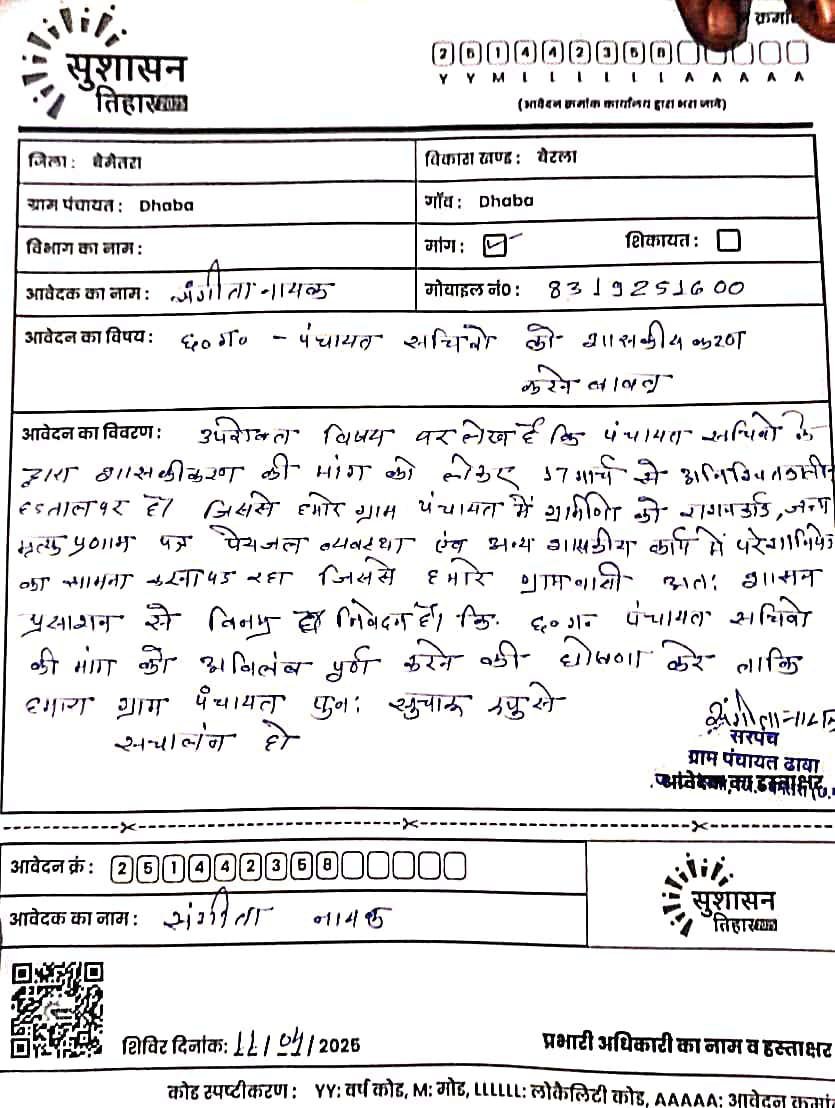 सुशासन
तिहार 2025
क्रमांक
2 5 1 4 4 2 3 5 8
Y Y M L L L L L L A A A A A
(आवेदन क्रमांक कार्यालय द्वारा भरा जावे)
जिला : बेमेतरा
विकास खण्ड : बेरला
ग्राम पंचायत : Dhaba
गाँव : Dhaba
विभाग का नाम :
मांग : ☑ शिकायत : ☐
आवेदक का नाम : संगीता नायक
मोबाइल नं0 : 8319251600
आवेदन का विषय : छ०ग० - पंचायत सचिवो को शासकीय करण
करने बाबत्
आवेदन का विवरण : उपरोक्त विषय पर लेख है कि पंचायत सचिवो के
द्वारा शासकीकरण की मांग को लेकर 17 मार्च से अनिश्चितकालीन
हड़ताल पर है। जिससे हमारे ग्राम पंचायत में ग्रामीणो को राशनकार्ड, जन्म
मृत्यु प्रणाम पत्र पेयजल व्यवस्था एंव अन्य शासकीय कार्य में परेशानियो
का सामना करना पड रहा जिससे हमारे ग्रामवासी अत: शासन
प्रसाशन से विनम्र निवेदन है। कि छ०ग० पंचायत सचिवो
की मांग को अविलंब पूर्ण करने की घोषणा करे ताकि
हमारा ग्राम पंचायत पुन: सुचारू रूप से
सचालंन हो
संगीता नायक
सरपंच
ग्राम पंचायत ढाबा
आवेदक का हस्ताक्षर
आवेदन क्रं : 2 5 1 4 4 2 3 5 8
आवेदक का नाम : संगीता नायक
सुशासन
तिहार 2025
शिविर दिनांक: 11/04/2025
प्रभारी अधिकारी का नाम व हस्ताक्षर
कोड स्पष्टीकरण : YY: वर्ष कोड, M: मोड, LLLLLL: लोकैलिटी कोड, AAAAA: आवेदन क्रमांक